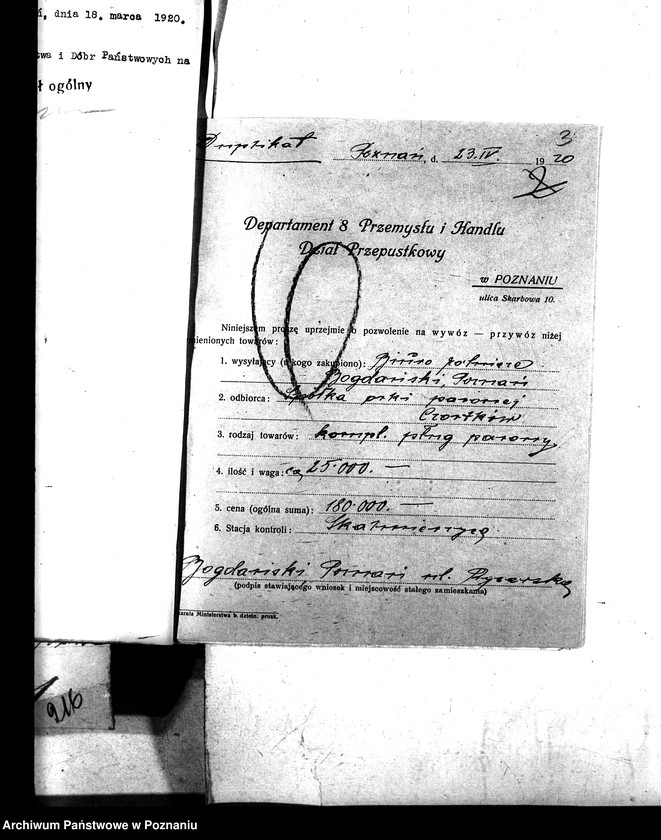 , dnia 18. marca 1920.
twa i Dóbr Państwowych na
ł ogólny
Duplikat
3
Poznań, d. 23.IV. 1920
Departament 8 Przemysłu i Handlu
Dział Przepustkowy
w POZNANIU
ulica Skarbowa 10.
Niniejszem proszę uprzejmie o pozwolenie na wywóz — przywóz niżej
mienionych towarów:
1. wysyłający (u kogo zakupiono): Biuro rolnicze
Bogdański, Poznań
2. odbiorca: Spółka orki parowej
Czortków
3. rodzaj towarów: kompl. pług parowy
4. ilość i waga: ca 25.000. —
5. cena (ogólna suma): 180.000. —
6. Stacja kontroli: Skalmierzyce
Bogdański Poznań ul. Rycerska
(podpis stawiającego wniosek i miejscowość stałego zamieszkania)
arnia Ministerstwa b. dzieln. prusk.
916
Archiwum Państwowe w Poznaniu